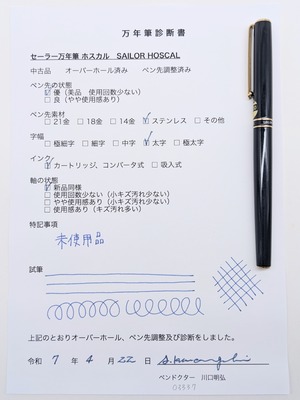 万年筆診断書
セーラー万年筆 ホスカル　SAILOR HOSCAL
中古品　オーバーホール済み　ペン先調整済み
ペン先の状態
☑優（美品　使用回数少ない）
□良（やや使用感あり）
ペン先素材
□21金　□18金　□14金　☑ステンレス　□その他
字幅
□極細字　□細字　□中字　☑太字　□極太字
インク
☑カートリッジ、コンバータ式　□吸入式
軸の状態
☑新品同様
□使用回数少ない（小キズ汚れ少ない）
□やや使用感あり（小キズ汚れ少ない）
□使用感あり（キズ汚れ多い）
特記事項
未使用品
試筆
上記のとおりオーバーホール、ペン先調整及び診断をしました。
令和　7　年　4　月　22　日
ペンドクター　川口明弘